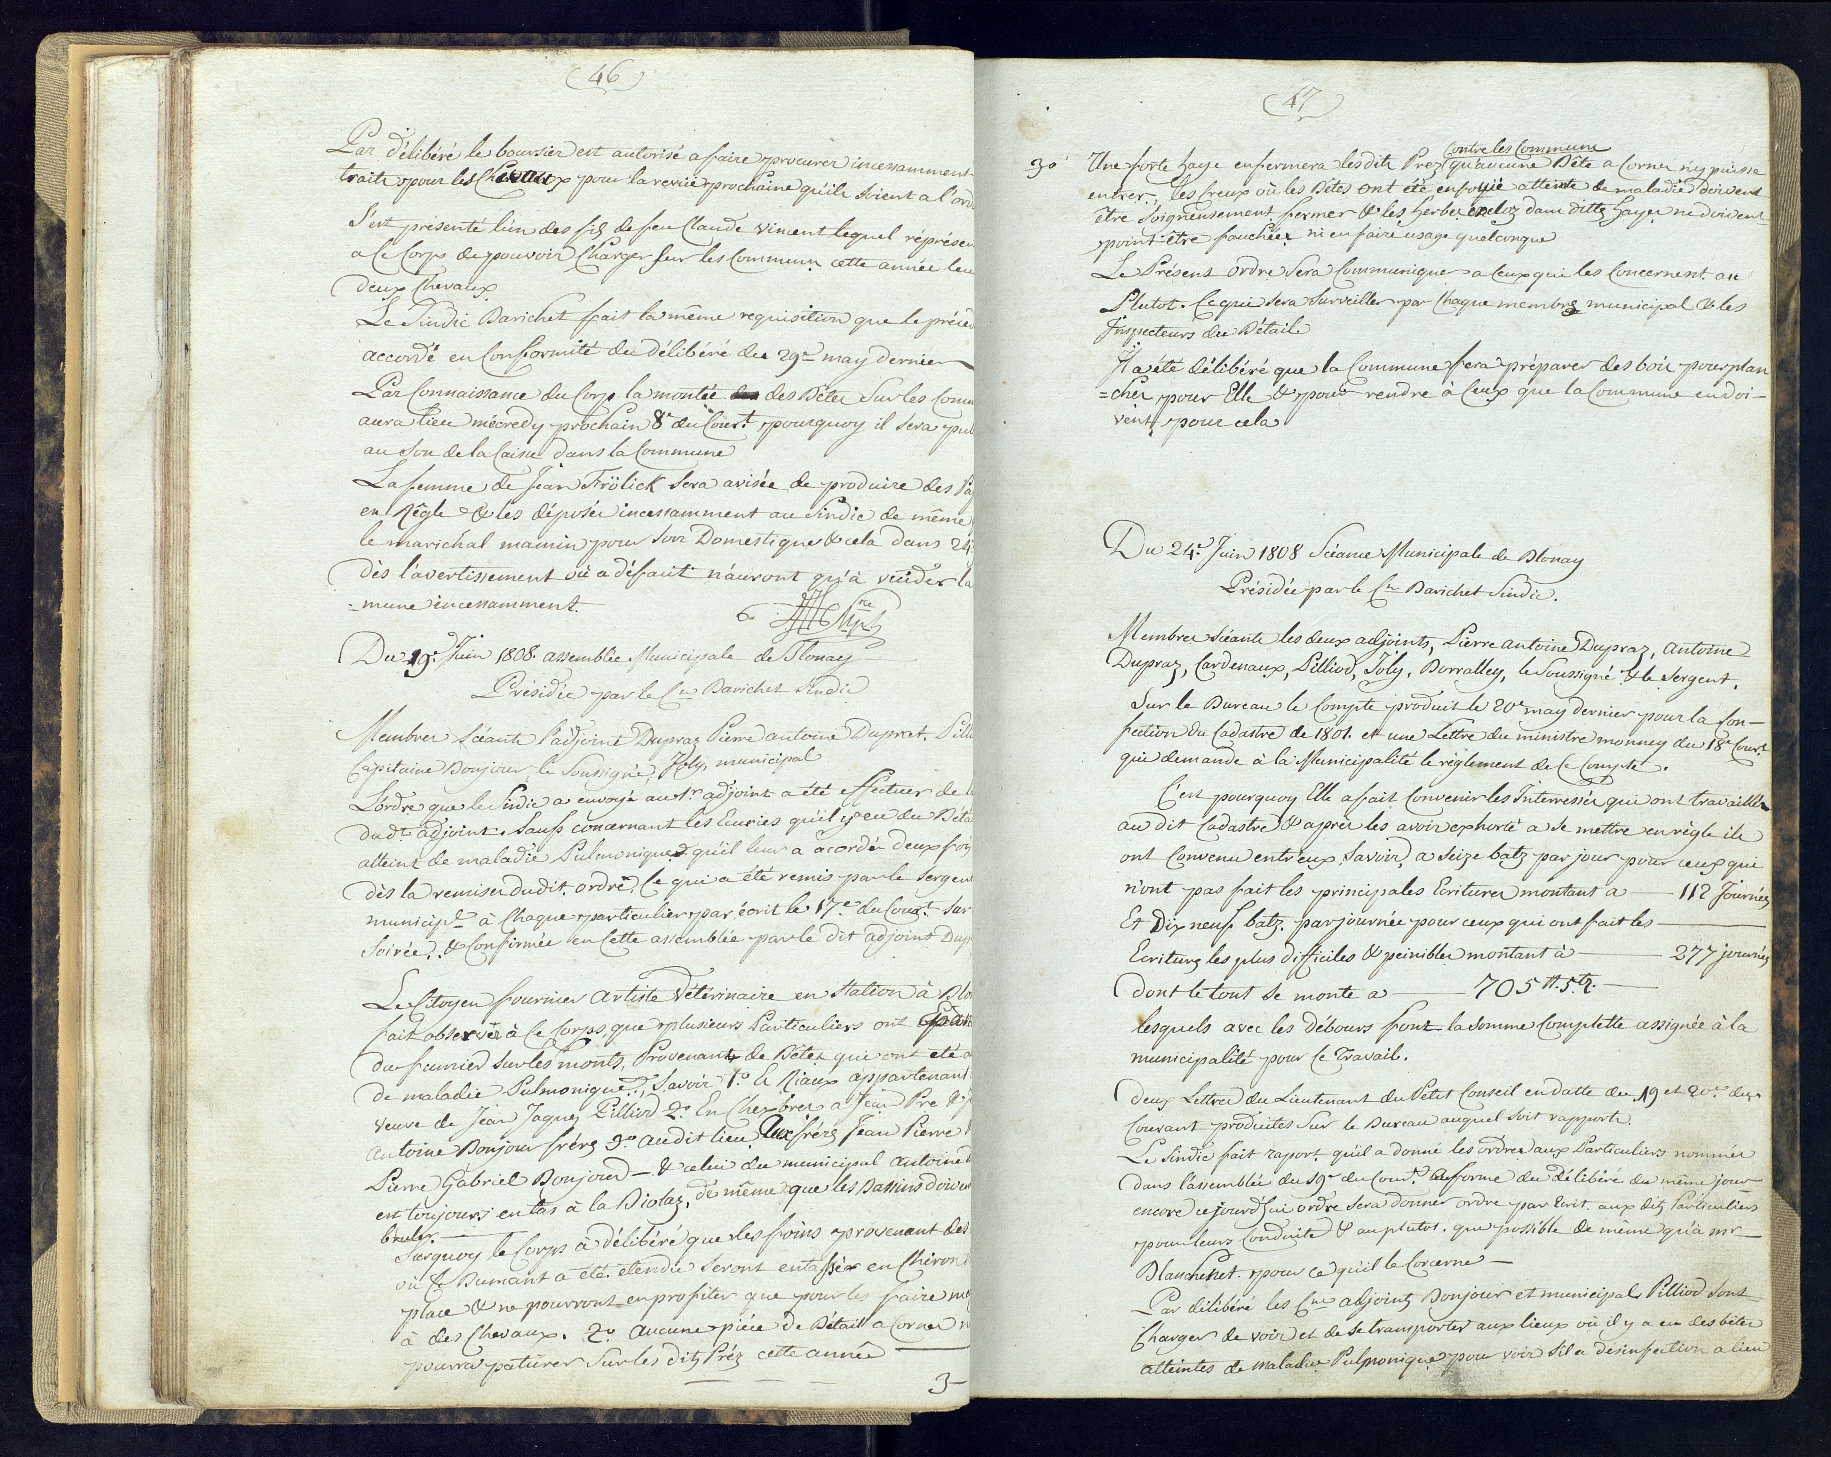 (46)
Par délibéré le boursier est autorisé a faire procurer incessamment
traits pour les Chevaux pour la revüe prochaine qu'ils soient a l'ord
S'est présenté l'un des fils de feu Claude Vincent lequel réprésen
a Ce Corps de pouvoir Charger sur les Communs cette année leu
deux Chevaux
Le Sindic Barichet fait la même requisition que le précéd
accordé en Conformité du délibéré du 29e may dernier
Par Connaissance du Corps la montée des Bêtes Sur les Comm
aura lieu mécredy prochain 8e du Cour.t pourquoy il sera pub
au Son de la Caisse dans la Commune
La femme de Jean Frölick sera avisée de produire des Pa
en Règle & les déposer incessamment au Sindic de même
le marichal mamin pour Son Domestique & celà dans 24
dès l'avertissement où a défaut n'auront qu'à vuider la
=mune incessamment.
Du 19e. Juin 1808. assemblée Municipale de Blonay
Présidée par le Cn Barichet Sindic
Membres Séants l'adjoint Dupraz Pierre antoine Dupraz. Pilli
Capitaine Bonjour, le Soussigné, Joly, municipal
L'ordre que le Sindic a envoyé au 1r adjoint a été effectuer de l
dudt adjoint. Sauf concernant les Ecuries qu'il y eu du Béta
atteint de maladie Pulmonique qu'il leur a acordé deux foi
dès la remise dudit ordre, Ce qui a été remis par le Sergen
municipl à Chaque particulier par écrit le 17e du Court. sur
Soirée, & Confirmée en Cette assemblée par le dit adjoint Dup
Le Citoyen fournier Artiste Vétérinaire en Station à Blo
fait observer à Ce Corps, que plusieurs Particuliers ont épan
du fumier Sur les monts, Provenant de Bêtes qui ont été a
de maladie Pulmonique, Savoir 1o. Es Riaux appartenant
veuve de Jean Jaques Pilliod 2o En Chexbres a Jean Pre & J
Antoine Bonjour frères 3o audit lieu aux frères Jean Pierre
Pierre Gabriel Bonjour — & celui du municipal antoine
est toujours en tas à la Biolaz, de même que les Bassins doiven
bruler.
Surquoy le Corps à délibéré que les foins provenant des
où Ce Dumant a été étendu Seront entassés en Chiron
place & ne pourront en profiter que pour les faire ma
à des Chevaux. 2o Aucune piéce de Bétail a Cornes n
pourra patûrer Sur les dits Préz cette année
3
(47)
Contre les Commune
3o Une forte haye enfermera les dits Prez qu'aucune Bête a Cornes n'y puisse
entrer, les Creux où les Bêtes ont été enfouïe atteinte de maladie doivent
être Soigneusement fermer & les herbes encloz dans dittes hayes ne doivent
point être fauchées ni en faire usage quelconque
Le Présens ordre Sera Communiqué a Ceux qui les Concernent. au
Plutot. Ce qui sera Surveiller par Chaque membre municipal & les
Inspecteurs du Bétail
Il a été délibéré que la Commune fera préparer des bois pour plan
=cher pour Elle & pour rendre à Ceux que la Commune en doi-
vent pour cela
Du 24e. Juin 1808 Séance Municipale de Blonay
Présidée par le Cen Barichet Sindic.
Membres Séants les deux adjoints, Pierre antoine Dupraz, Antoine
Dupraz, Cardenaux, Pilliod, Joly, Borralley, le Soussigné & le Sergent.
Sur le Bureau le Compte produit le 20e may dernier pour la Con-
fection du Cadastre de 1801. et une Lettre du ministre monney du 18e Court.
qui demande à la Municipalité le réglement de Ce Compte.
C'est pourquoy Elle a fait Convenir les Interressés qui ont travaillé
au dit Cadastre & après les avoir exhorté a se mettre en règle ils
ont Convenu entr'eux Savoir, a Seize batz par jour pour ceux qui
n'ont pas fait les principales Ecritures montant a — 112 Journées
Et Dix neuf batz. par journée pour ceux qui ont fait les —
Ecritures les plus difficiles & peinibles montant à — 277 journées
dont le tout Se monte a — 705 tt. 5 bz. —
lesquels avec les débours font la somme Complette assignée à la
municipalité pour Ce Travail.
deux Lettres du Lieutenant du Petit Conseil en datte du 19 et 20e. du
Courant produites Sur le Bureau auquel Soit rapporté.
Le Sindic fait raport qu'il a donné les ordres aux Particuliers nommés
dans l'assemblée du 19e du Cour.t Conforme du délibéré du même jour
encore ce jourd'hui ordre sera donner ordre par Ecrit. aux dits Particuliers
pour leurs Conduite & au plutot. que possible de même qu'à mr
Blanchenet. pour ce qu'il le Concerne —
Par délibéré les Cens adjoints Bonjour et municipal Pilliod sont
Charger de voir et de se transporter aux lieux où il y a eu des bêtes
atteintes de maladie Pulmonique pour voir Si la désinfection a lieu